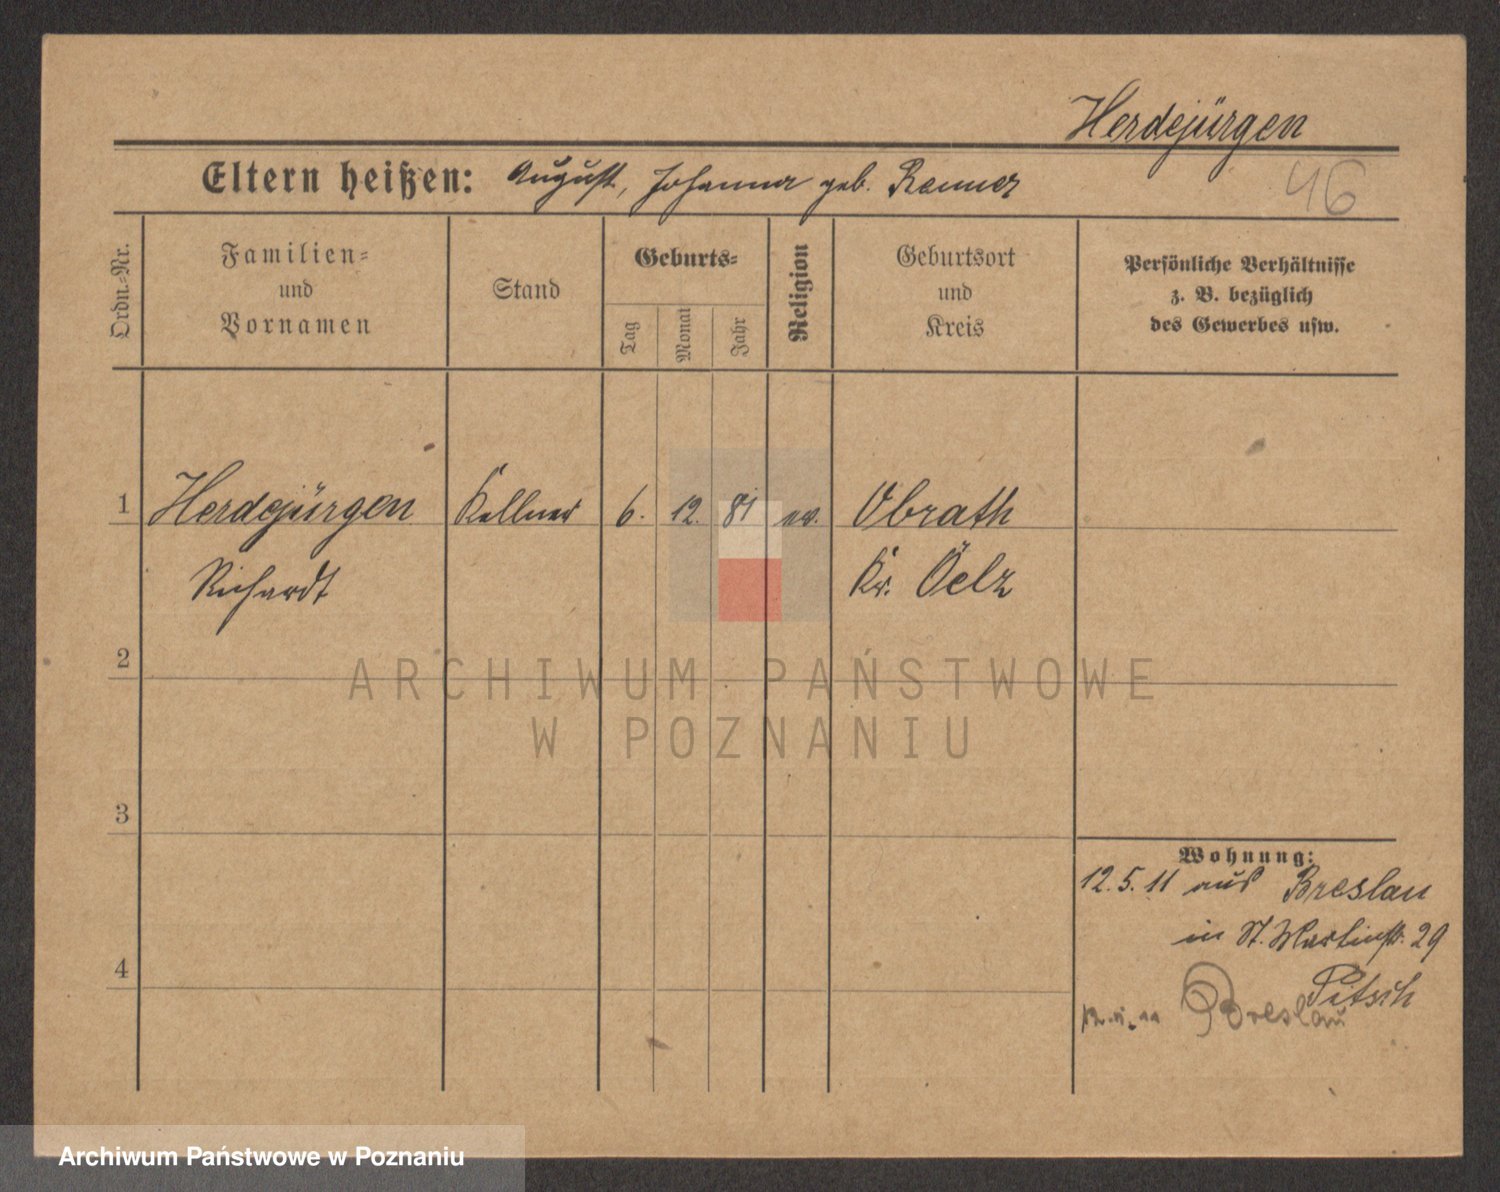 Herdejürgen
46
Eltern heißen: August, Johanna geb. Renner
Ordn.-Nr.
Familien-
und
Vornamen
Stand
Geburts-
Tag
Monat
Jahr
Religion
Geburtsort
und
Kreis
Persönliche Verhältnisse
z. B. bezüglich
des Gewerbes usw.
1 Herdejürgen Kellner 6. 12. 81 ev. Obrath
Richardt Kr. Öelz
2
ARCHIWUM PAŃSTWOWE
W POZNANIU
3
Wohnung:
12.5.11 aus Breslau
in St. Martinstr. 29
4
Pitsch
Breslau
Archiwum Państwowe w Poznaniu